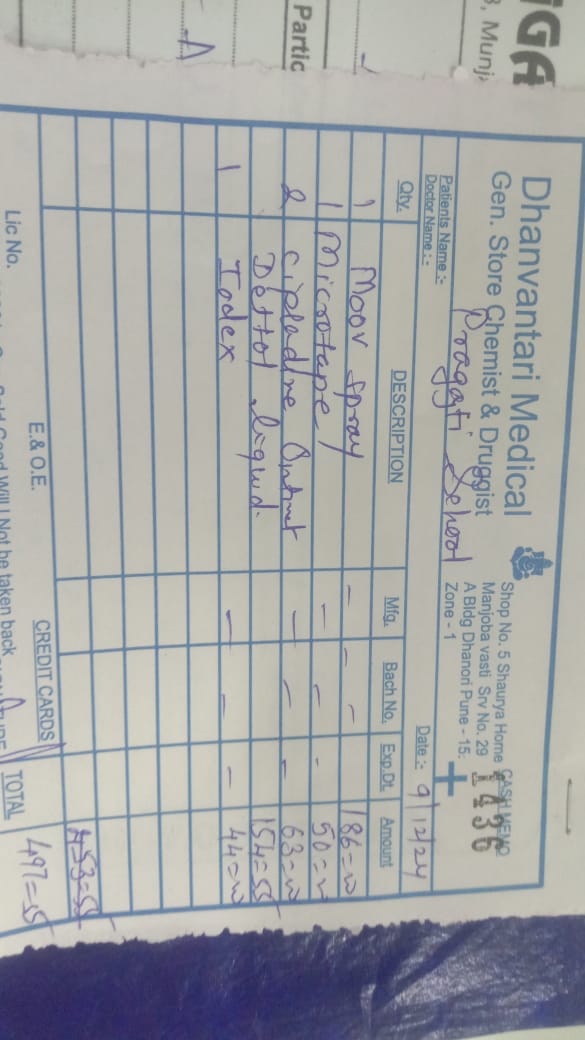 Dhanvantari Medical
Gen. Store Chemist & Druggist
Shop No. 5 Shaurya Home
Manjoba vasti Srv No. 29
A Bldg Dhanori Pune - 15.
Zone - 1
CASH MEMO
1436
Patients Name :- Pragati School
Doctor Name :-
Date :- 9/12/24
Qty. DESCRIPTION Mfg. Bach No. Exp.Dt. Amount
1 Moov spray - - - 186=00
1 Microtape - - - 50=00
2 cipladine Ointmet - - - 63=00
Dettol liquid. 154=55
1 Iodex - - - 44=00
453=55
E.& O.E. CREDIT CARDS TOTAL 497=55
Lic No.
Good Will Not be taken back
IGA
3, Munj
Partic
A